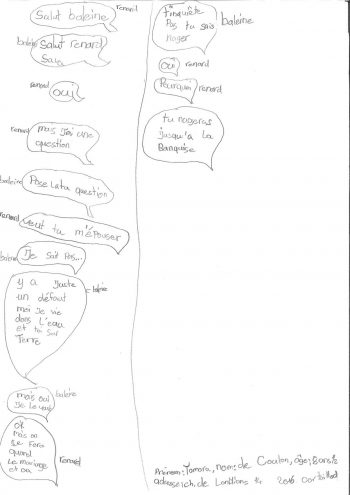 Salut baleine
renard
baleine
Salut renard
Sava
oui
renard
renard
mais j'ai une
question
baleine
Pose Lata question
renard
veut tu m'épouser
baleine
Je sait Pas...
y a juste
un défaut
moi Je vie
dans L'eau
et toi Sur
Terre
baleine
mais oui
Je Le veux
baleine
ok
mais on
Se Fera
quand
Le mariage
et ou
renard
t'inquiète
Pas tu sais
nager
baleine
oui
renard
Pourquoi
renard
tu nageras
jusqu'a La
Banquise
Prénom: Tamara, nom: de Coulon, âge: 8 ans ½
adresse: ch. de 14 2016 Cortaillod